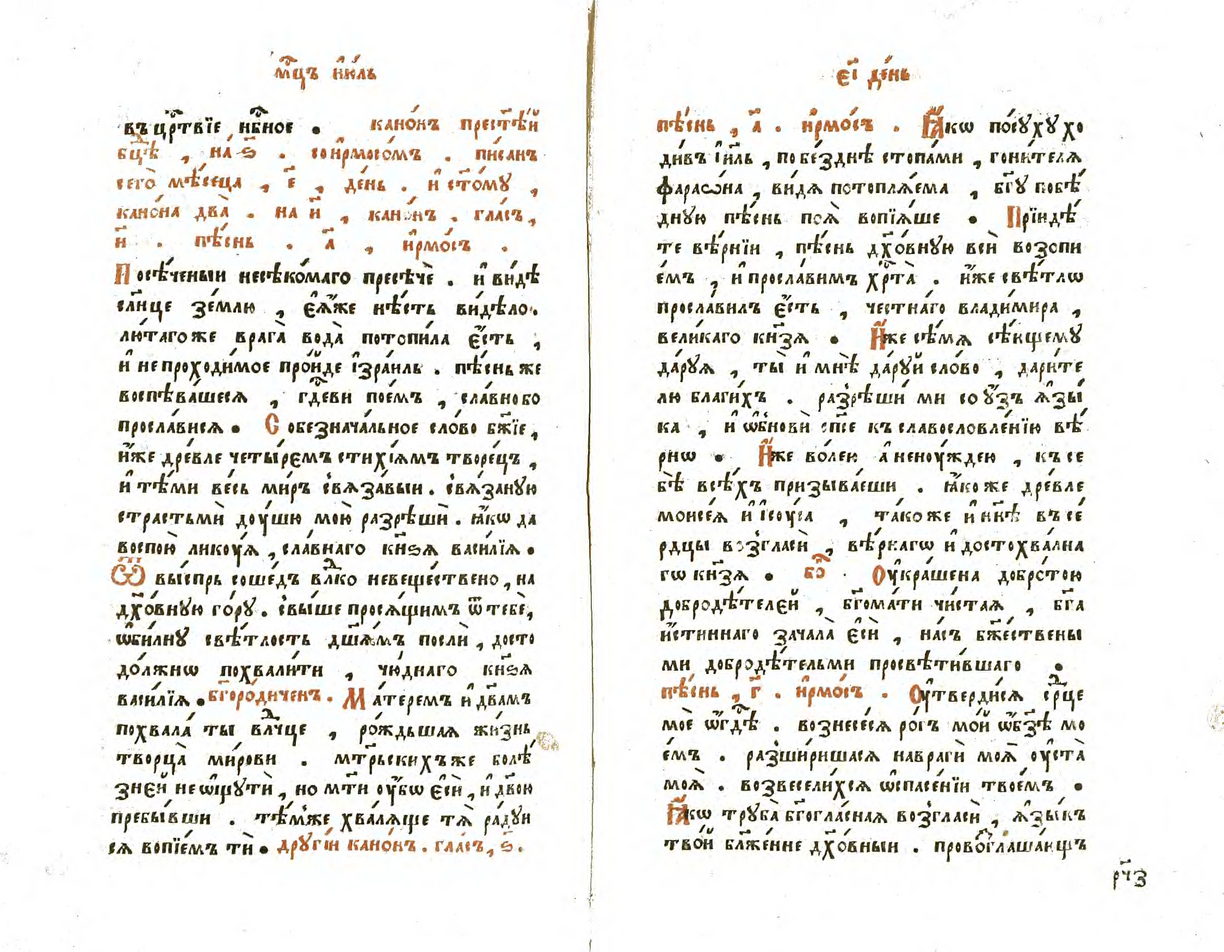 мⷭ҇цъ і҆ю́ль
въ црⷭ҇твїе нбⷭ҇ное • кано́нъ прест҃ѣ́й
бцⷣѣ , на ѕ҃ . со і҆рмосо́мъ . писанъ
сего̀ мѣ́сеца , е҃ , де́нь . и҆ ст҃о́му ,
кано́на два̀ . на и҃ , кано́нъ . гла́съ ,
и҃ . пѣ́снь . а҃ , і҆рмо́съ .
Посѣ́ченыи несѣко́маго пресѣчѐ . и҆ ви́дѣ
сл҃нце зе́млю , є҆ѧ́же нѣ́сть ви́дѣло .
лю́таго же врага̀ вода̀ потопи́ла є҆́сть ,
и҆ непроходи́мое про́йде і҆зра́иль . пѣ́снь же
воспѣва́шесѧ , гдⷭ҇еви пое́мъ , сла́вно бо
просла́висѧ • Собезнача́льное сло́во бж҃їе ,
и҆́же дре́вле четы́remъ стихі́ѧмъ творе́цъ ,
и҆ тѣ́ми весь ми́ръ свѧза́выи . свѧ́заную
страстьмѝ доу́шю мою̀ разрѣшѝ . ꙗ҆́кѡ да
воспою̀ лику́ѧ , сла́внаго кн҃ѕѧ васи́лїѧ •
Ѿ вы́спрь соше́дъ влⷣко невеще́ствено , на
дх҃о́вную го́ру . свы́ше просѧ́щимъ ѿ тебѐ ,
ѡ҆би́лну свѣ́тлость дш҃а́мъ послѝ , досто
до́лжнѡ похвали́ти , чю́днаго кн҃ѕѧ
васи́лїѧ • бг҃оро́диченъ . Ма́теремъ и҆ дв҃амъ
похвала̀ ты̀ влⷣчце , ро́ждьшаѧ жи́знь
творца̀ ми́рови . мт҃рьскихъ же болѣ́
зней не ѡ҆щу́ти , но мт҃и ᲂу҆́бѡ є҆сѝ , и҆ дв҃ою
пребы́вши . тѣ́мже хва́лѧще тѧ̀ ра́дуи
сѧ вопїе́мъ ти̏ • дрꙋгі́и кано́н . гла́съ , ѕ҃ .
є҃і де́нь
пѣ́снь , а҃ . і҆рмо́съ . Ꙗ҆́кѡ посу́ху хо
ди́въ і҆и҃ль , по бе́зднѣ стопа́ми , гони́телѧ
фараѡ́на , ви́дѧ потоплѧ́ема , бг҃у побѣ́
дную пѣ́снь поѧ̀ вопїѧ́ше • Прїидѣ́
те вѣ́рнїи , пѣ́снь дх҃о́вную всѝ возопи
е́мъ , и҆ просла́вимъ хрⷭ҇та̀ . и҆́же свѣ́тлѡ
просла́вилъ є҆́сть , че́стнаго влади́мира ,
вели́каго кн҃ѕѧ • И҆́же сѣ́мѧ сѣ́ющему
да́руѧ , ты̀ и҆ мнѣ̀ да́руй сло́во , дари́те
лю благи́хъ . разрѣшѝ ми со у҆́зъ ꙗ҆зы́
ка , и҆ ѡ҆бновѝ спⷭ҇е къ славословле́нїю вѣ́
рнѡ • И҆́же во́лею а҆ нену́ждею , къ се
бѣ̀ всѣ́хъ призыва́еши . ꙗ҆́коже дре́вле
моисе́ѧ и҆ і҆сѹ́са , та́коже и҆ нн҃ѣ въ се́
рдцы возгласѝ , вѣ́рнагѡ и҆ достохва́лна
гѡ кн҃ѕѧ • бо҃ . Оу҆кра́шена добро́тою
добродѣ́телей , бг҃ома́ти чи́стаѧ , бг҃а
и҆́стиннаго зачала̀ є҆сѝ , на́съ бж҃е́ствены
ми добродѣ́тельми просвѣти́вшаго •
пѣ́снь , г҃ . і҆рмо́съ . Оу҆тверди́сѧ срⷣце
моѐ ѡ҆ гдⷭ҇ѣ . вознесе́сѧ ро́гъ мо́й ѡ҆ бз҃ѣ мо
е́мъ . разшири́шасѧ на врагѝ моѧ̀ оу҆ста̀
моѧ̀ . возвесели́хсѧ ѡ҆ спасе́нїи твое́мъ •
Ꙗ҆́кѡ труба̀ бг҃огла́снаѧ возгласѝ , ꙗ҆зы́къ
тво́й бл҃же́нне дх҃о́вныи . провоглаша́ющъ
рч҃з